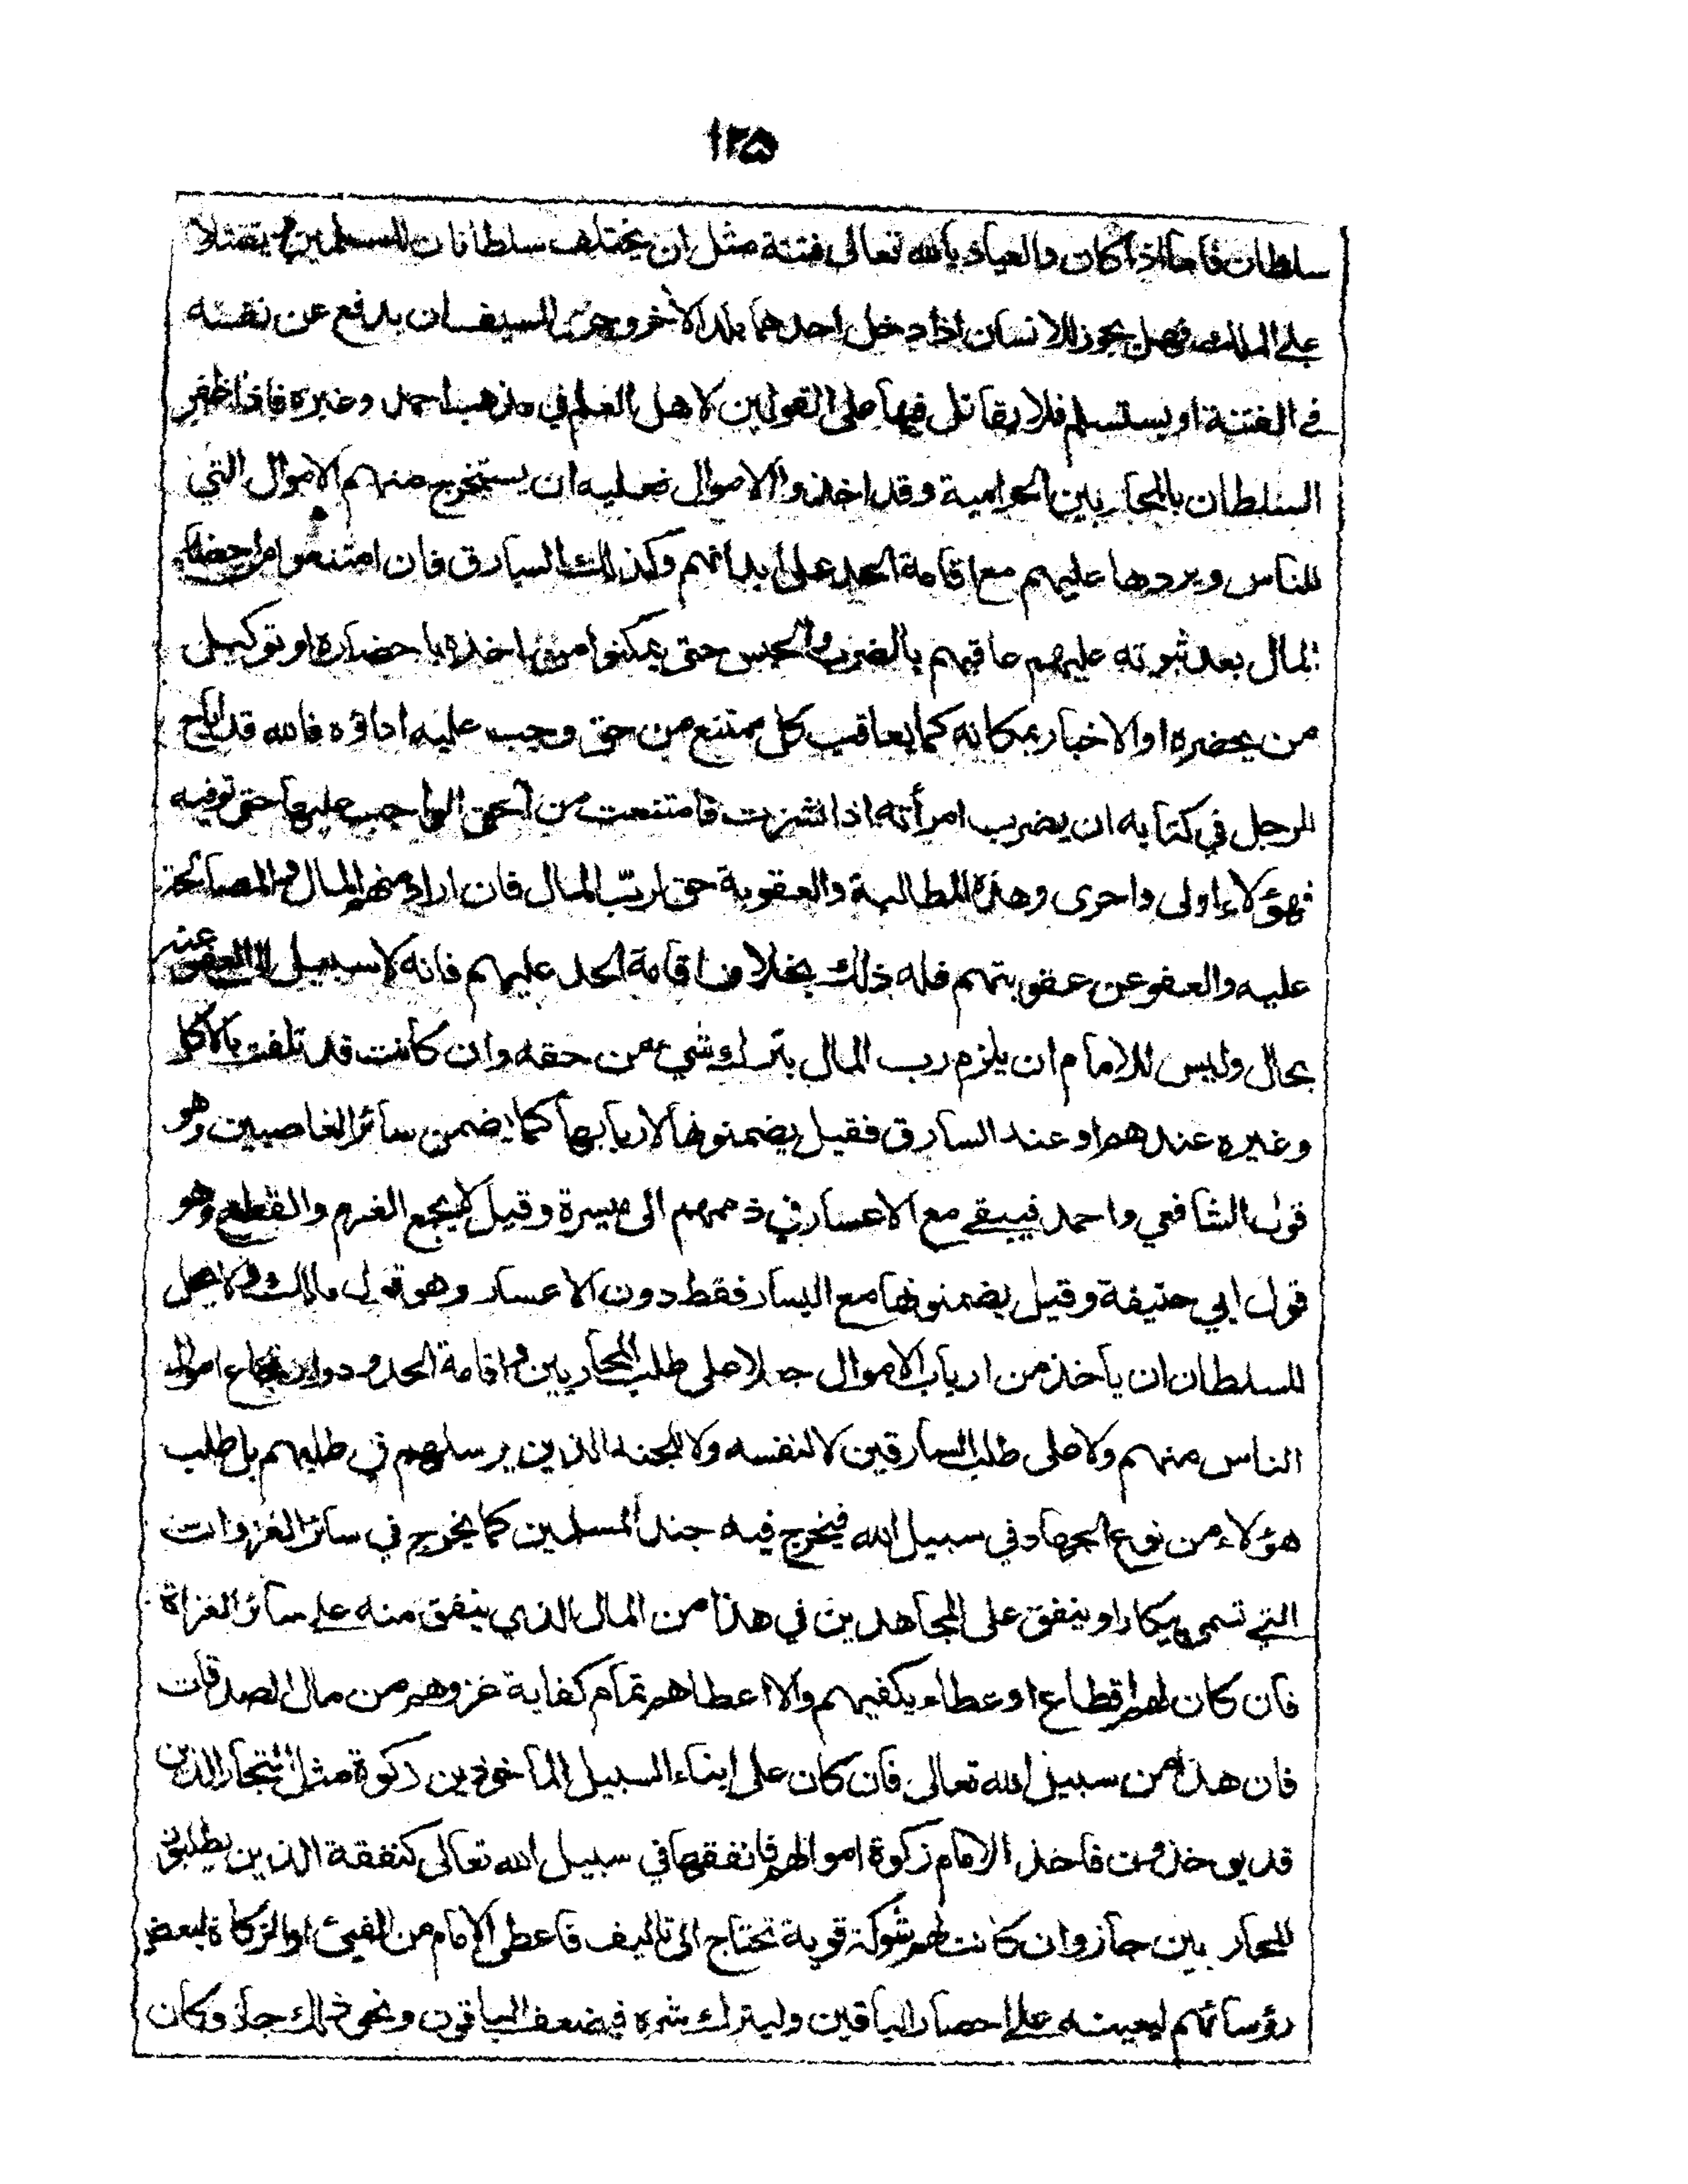 ١٢٥
سلطان فاما اذا كان والعياذ بالله تعالى فتنة مثل ان يختلف سلطانان للمسلمين و يقتتلا
على الملك فهل يجوز للانسان اذا دخل احدهما بلد الآخر وجرى السيف ان يدفع عن نفسه
في الفتنة او يستسلم فلا يقاتل فيها على القولين لاهل العلم في مذهب احمد وغيره فاذا ظفر
السلطان بالمحاربين الحرامية وقد اخذوا الاموال فعليه ان يستخرج منهم الاموال التي
للناس ويردها عليهم مع اقامة الحد على ابدانهم وكذلك السارق فان امتنعوا من احضار
المال بعد ثبوته عليهم عاقبهم بالضرب والحبس حتى يمكنوا من اخذه باحضاره او توكيل
من يحضره او الاخبار بمكانه كما يعاقب كل ممتنع من حق وجب عليه اداؤه فالله قد اباح
للرجل في كتابه ان يضرب امرأته اذا نشزت فامتنعت من الحق الواجب عليها حتى توفيه
فهؤلاء اولى واحرى وهذه المطالبة والعقوبة حق لرب المال فان اراد هبتهم المال والمصالحة
عليه والعفو عن عقوبتهم فله ذلك بخلاف اقامة الحد عليهم فانه لا سبيل الى العفو عنه
بحال وليس للامام ان يلزم رب المال بترك شيء من حقه وان كانت قد تلفت بالاكل
وغيره عندهم او عند السارق فقيل يضمنونها لاربابها كما يضمن سائر الغاصبين وهو
قول الشافعي واحمد فيبقى مع الاعسار في ذممهم الى ميسرة وقيل لا يجتمع الغرم والقطع وهو
قول ابي حنيفة وقيل يضمنونها مع اليسار فقط دون الاعسار وهو قول مالك ولا يحل
للسلطان ان يأخذ من ارباب الاموال جعلا على طلب المحاربين واقامة الحدود وارتجاع اموال
الناس منهم ولا على طلب السارقين لا لنفسه ولا للجند الذين يرسلهم في طلبهم بل طلب
هؤلاء من نوع الجهاد في سبيل الله فيخرج فيه جند المسلمين كما يخرج في سائر الغزوات
التي تسمى بيكارا وينفق على المجاهدين في هذا من المال الذي ينفق منه على سائر الغزاة
فان كان لهم اقطاع او عطاء يكفيهم والا اعطاهم تمام كفاية غزوهم من مال الصدقات
فان هذا من سبيل الله تعالى فان كان على ابناء السبيل المأخوذين زكوة مثل التجار الذين
قد يوخذون فاخذ الامام زكوة اموالهم فانفقها في سبيل الله تعالى كنفقة الذين يطلبون
المحاربين جاز وان كانت لهم شوكة قوية تحتاج الى تاليف فاعطى الامام من الفيئ او الزكاة لبعض
رؤسائهم ليعينه على احصار الباقين وليترك شره فيضعف الباقون ونحو ذلك جاز وكان